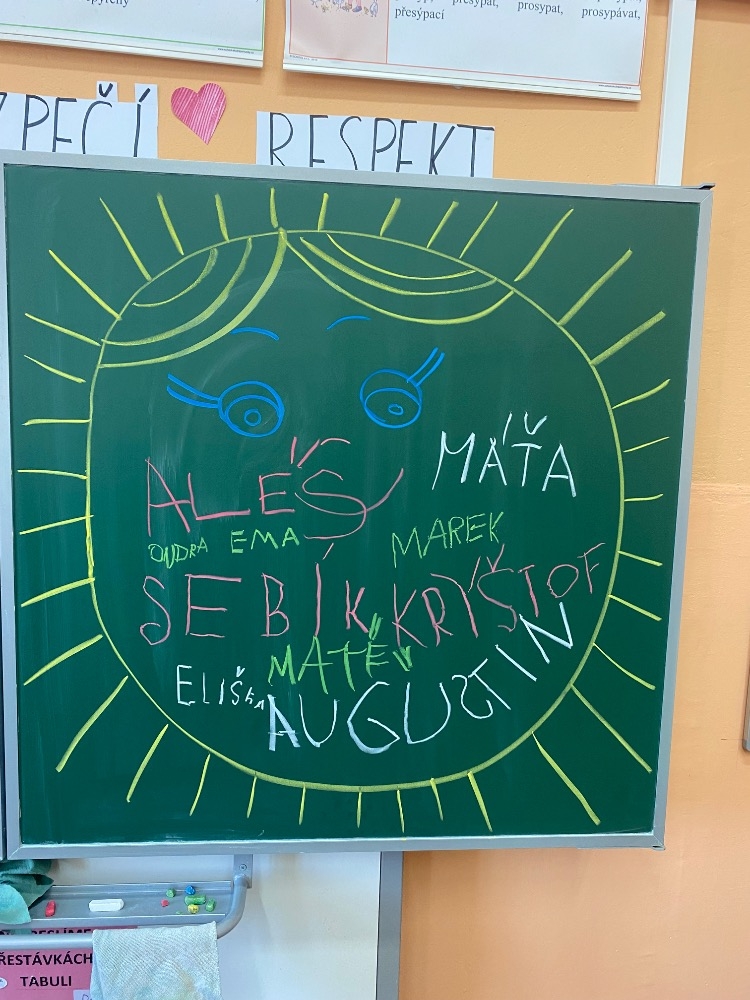 přesýpat, prosypat, prosypávat,
přesýpací
PEČÍ RESPEKT
ALEŠ MÁŤA
ONDRA EMA MAREK
SEBÍK KRYŠTOF
MATĚJ
ELIŠKA AUGUSTIN
TABULI